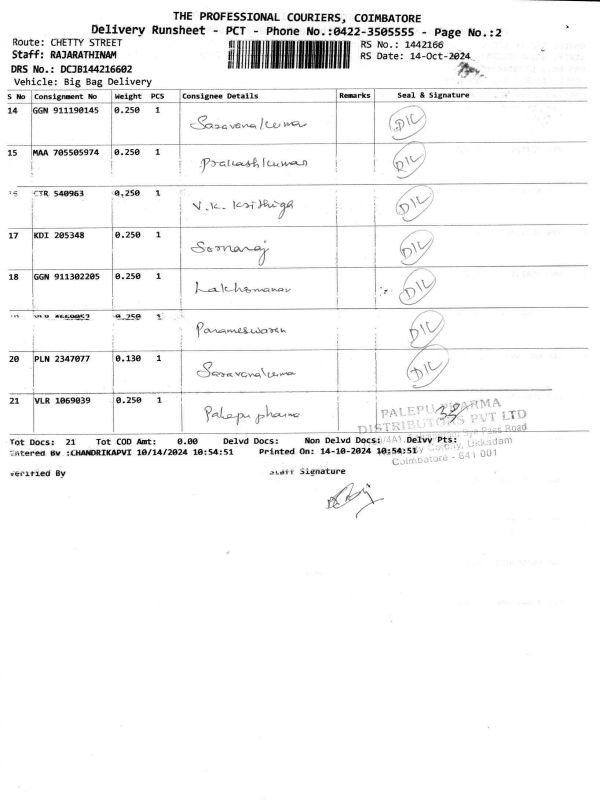 THE PROFESSIONAL COURIERS, COIMBATORE
Delivery Runsheet - PCT - Phone No.:0422-3505555 - Page No.:2
Route: CHETTY STREET
RS No.: 1442166
Staff: RAJARATHINAM
RS Date: 14-Oct-2024
DRS No.: DCJB144216602
Vehicle: Big Bag Delivery
S No Consignment No Weight PCS Consignee Details Remarks Seal & Signature
14 GGN 911190145 0.250 1 Saravanakumar D/L
15 MAA 705505974 0.250 1 Prakashkumar D/L
CTR 540963 0.250 1 V.K. Krithiga D/L
17 KDI 205348 0.250 1 Somaraj D/L
18 GGN 911302205 0.250 1 Lakhsmanan D/L
0.250 1 Parameswaran D/L
20 PLN 2347077 0.130 1 Saravanakumar D/L
21 VLR 1069039 0.250 1 Palepu pharma
PALEPU PHARMA
DISTRIBUTORS PVT LTD
Bye Pass Road
Colony, Ukkadam
Coimbatore - 641 001
Tot Docs: 21 Tot COD Amt: 0.00 Delvd Docs: Non Delvd Docs: Delvy Pts:
Entered By :CHANDRIKAPVI 10/14/2024 10:54:51 Printed On: 14-10-2024 10:54:51
Verified By Staff Signature